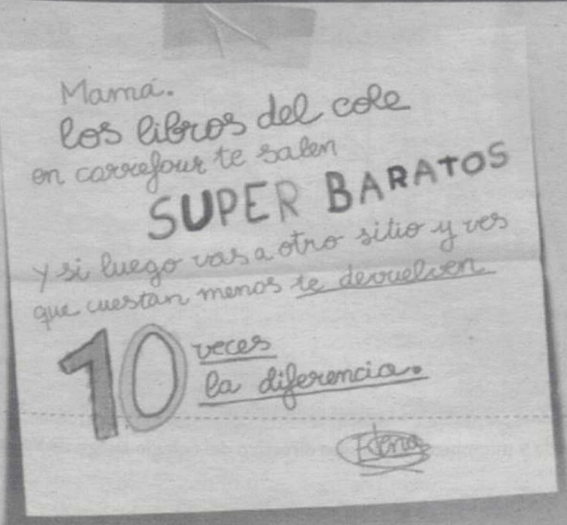 Mamá.
los libros del cole
en carrefour te salen
SUPER BARATOS
y si luego vas a otro sitio y ves
que cuestan menos te devuelven
10 veces
la diferencia.
Elena